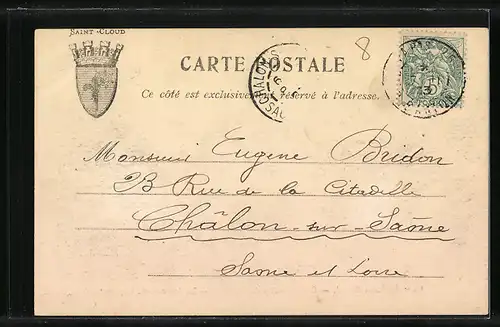 SAINT-CLOUD
8
CARTE POSTALE
Ce côté est exclusivement réservé à l'adresse.
CHALON-S
SAÔ
Monsieur Eugene Bridon
23 Rue de la Citadelle
Châlon-sur-Saône
Saone et Loire